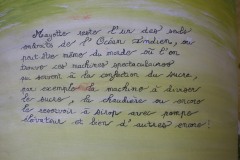 Mayotte reste l'un des seuls
endroits de l'Océan Indien, on
peut dire même du monde où l'on
trouve ces machines spectaculaires
qui servent à la confection du sucre,
par exemple la machine à cuire
le sucre, la chaudière ou encore
le réservoir à sirop avec pompe
élévateur et bien d'autres encore!